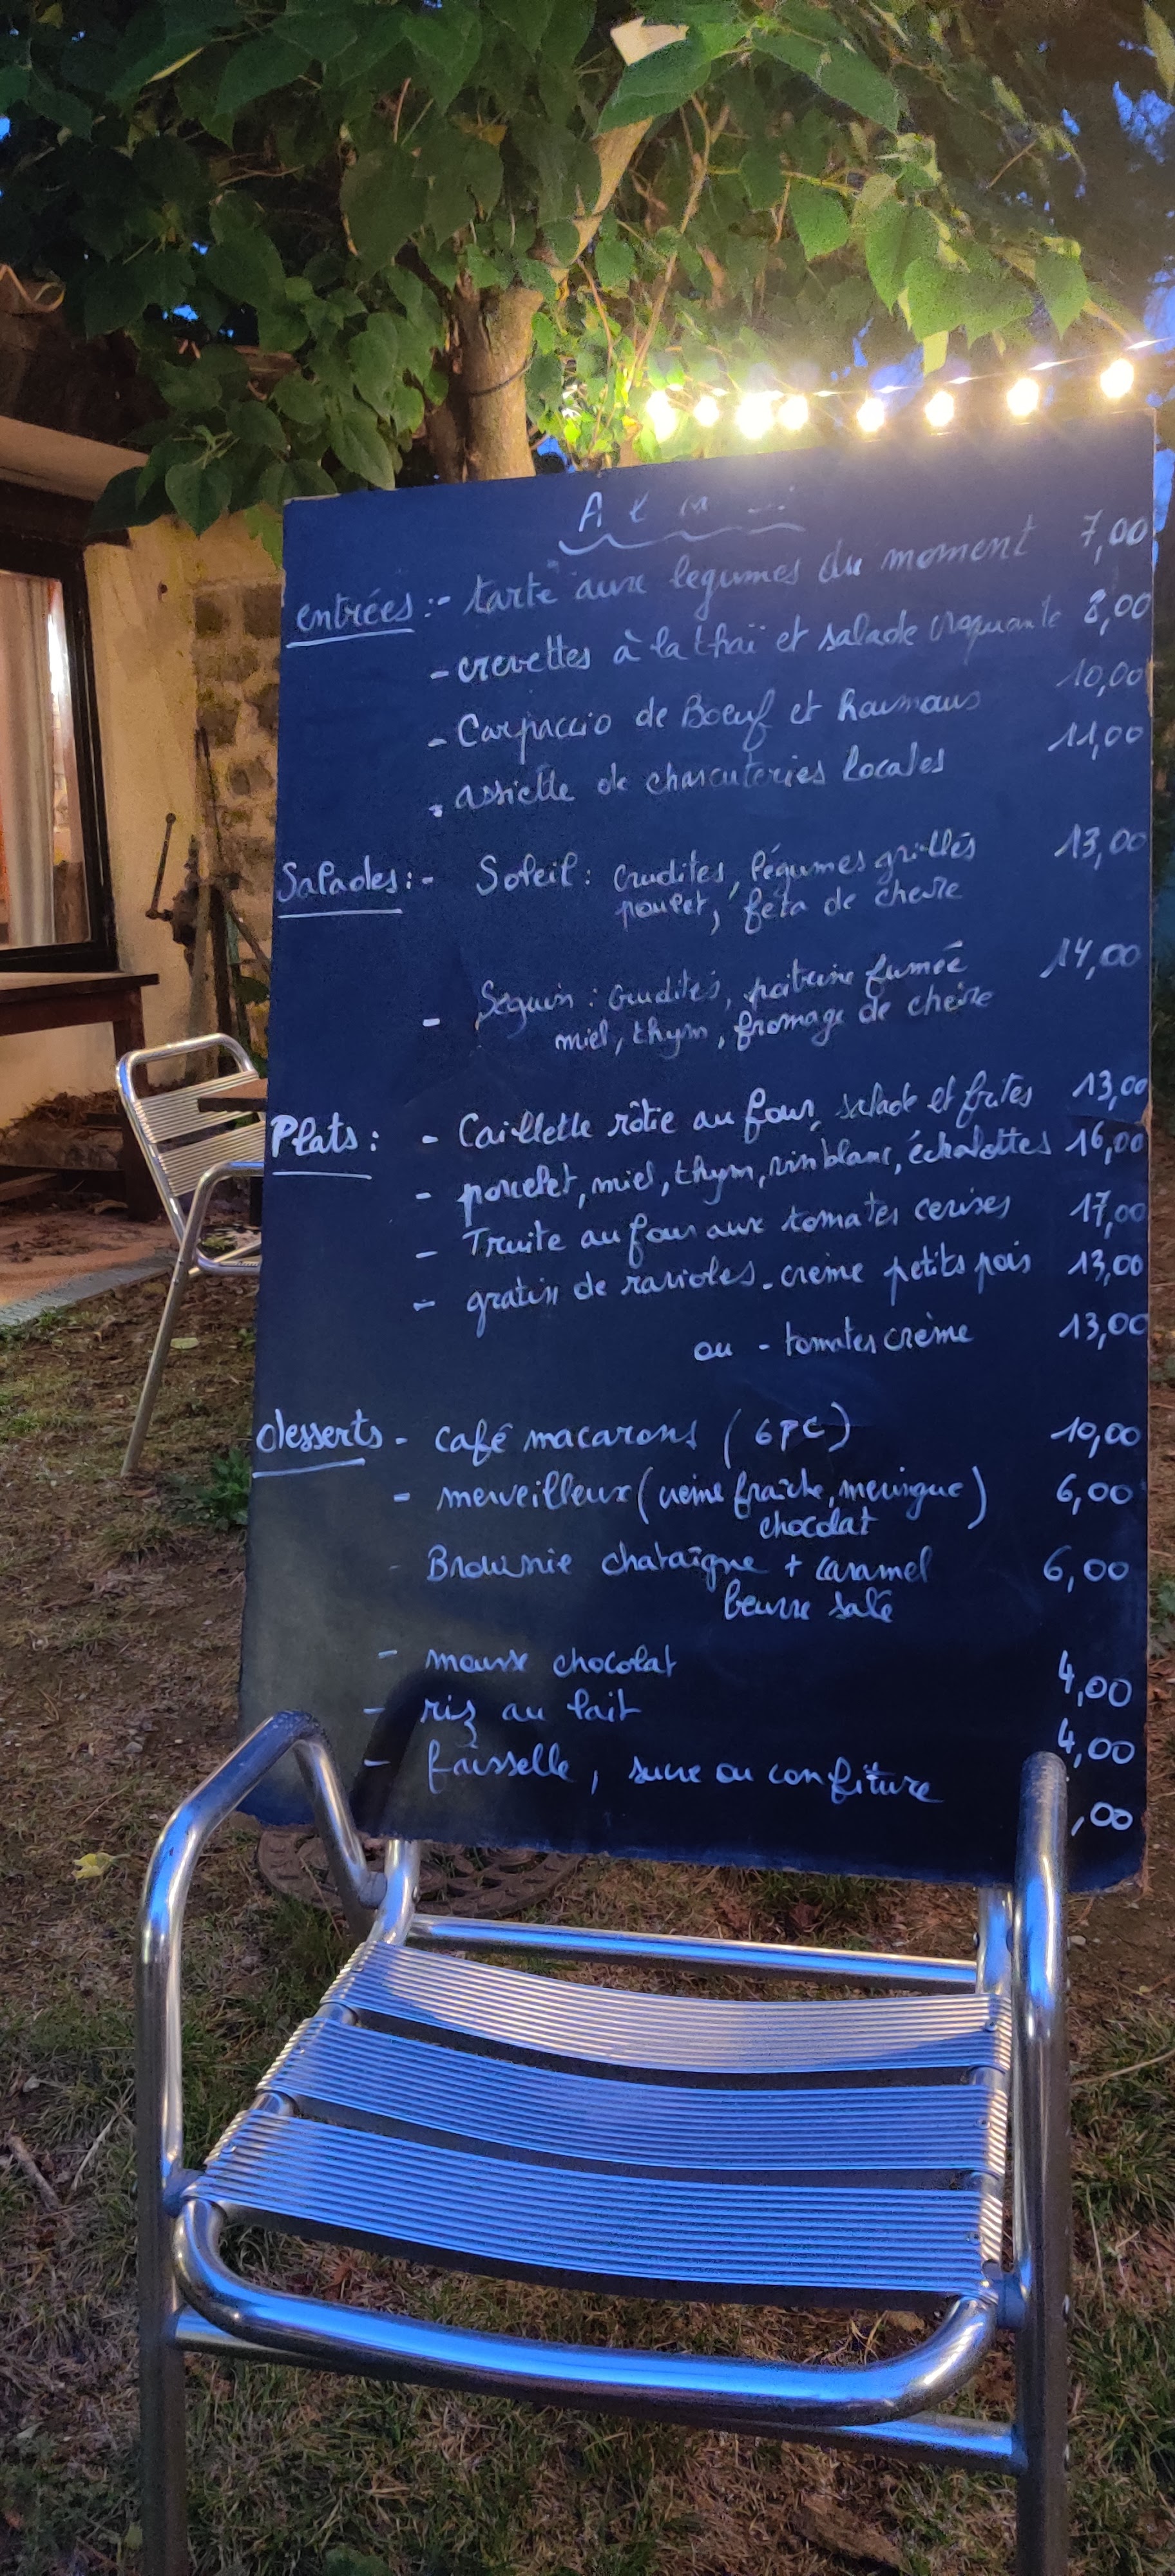 entrées :- tarte aux legumes du moment 7,00
- crevettes à la thaï et salade croquante 8,00
- Carpaccio de Boeuf et houmous 10,00
- assiette de charcuteries locales 11,00
Salades :- Soleil : crudites, légumes grillés 13,00
poulet, feta de chevre
- Seguin : crudités, poitrine fumée 14,00
miel, thym, fromage de chèvre
Plats : - Caillette rôtie au four, salade et frites 13,00
- porcelet, miel, thym, vin blanc, échalottes 16,00
- Truite au four aux tomates cerises 17,00
- gratin de ravioles - crème petits pois 13,00
ou - tomates crème 13,00
desserts - café macarons (6 PC) 10,00
- merveilleux (crème fraîche, meringue) 6,00
chocolat
- Brownie chataîgne + caramel 6,00
beurre salé
- mousse chocolat 4,00
- riz au lait 4,00
- faisselle, sucre ou confiture ,00